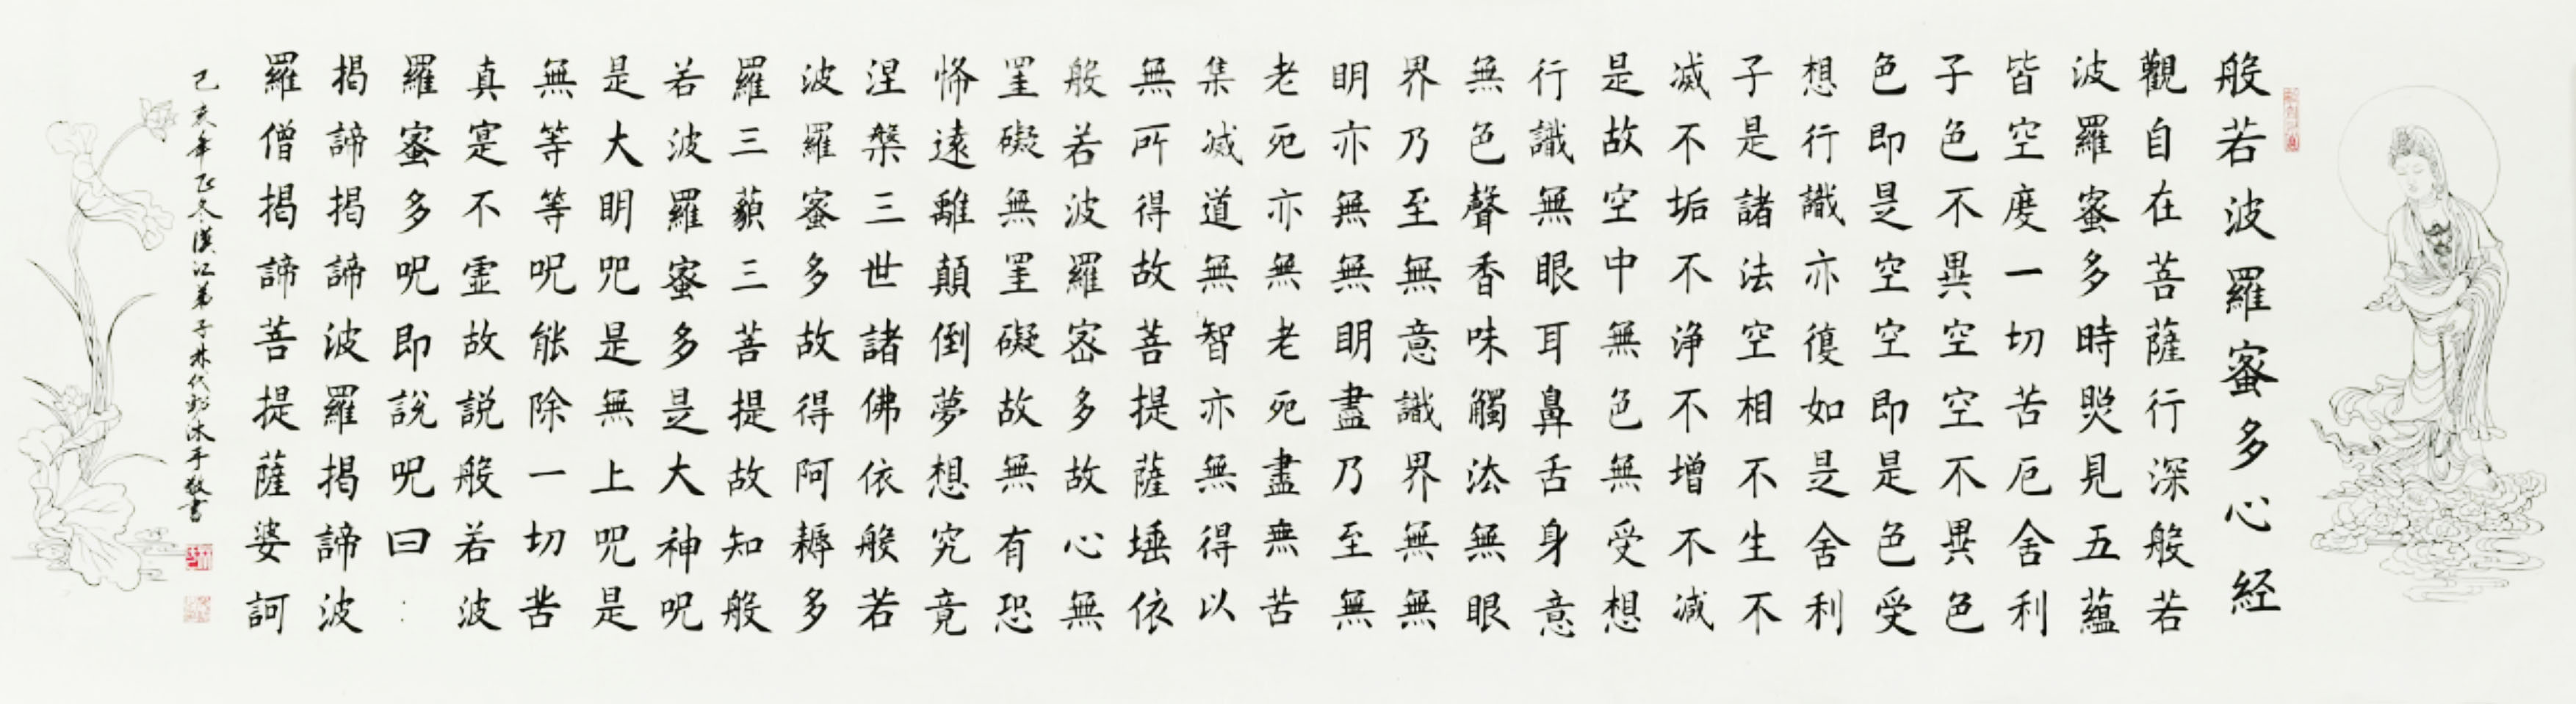 般若波羅蜜多心経
觀自在菩薩行深般若
波羅蜜多時照見五蘊
皆空度一切苦厄舍利
子色不異空空不異色
色即是空空即是色受
想行識亦復如是舍利
子是諸法空相不生不
滅不垢不淨不增不減
是故空中無色無受想
行識無眼耳鼻舌身意
無色聲香味觸法無眼
界乃至無意識界無無
明亦無無明盡乃至無
老死亦無老死盡無苦
集滅道無智亦無得以
無所得故菩提薩埵依
般若波羅密多故心無
罣礙無罣礙故無有恐
怖遠離顛倒夢想究竟
涅槃三世諸佛依般若
波羅蜜多故得阿耨多
羅三藐三菩提故知般
若波羅蜜多是大神呪
是大明咒是無上咒是
無等等呪能除一切苦
真寔不虛故説般若波
羅蜜多呪即說呪曰：
揭諦揭諦波羅揭諦波
羅僧揭諦菩提薩婆訶
己亥年冬漢江弟子林代沐手敬書